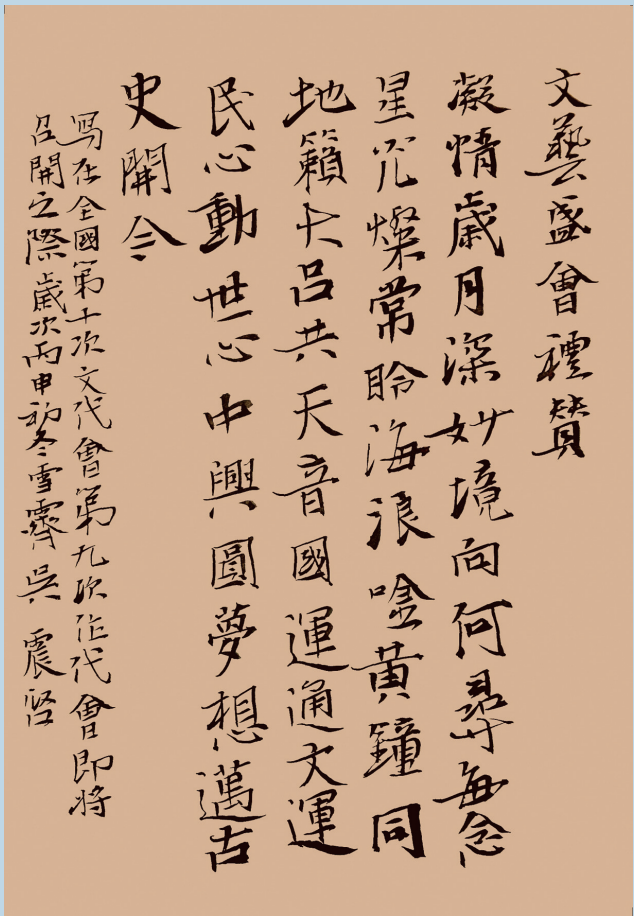 文藝盛會禮贊
凝情歲月深妙境向何尋每念
星光燦常聆海浪唫黃鐘同
地籟大呂共天音國運通文運
民心動世心中興圓夢想邁古
史開今
寫在全國第十次文代會第九次作代會即將
召開之際歲次丙申初冬雪霽吳震啓